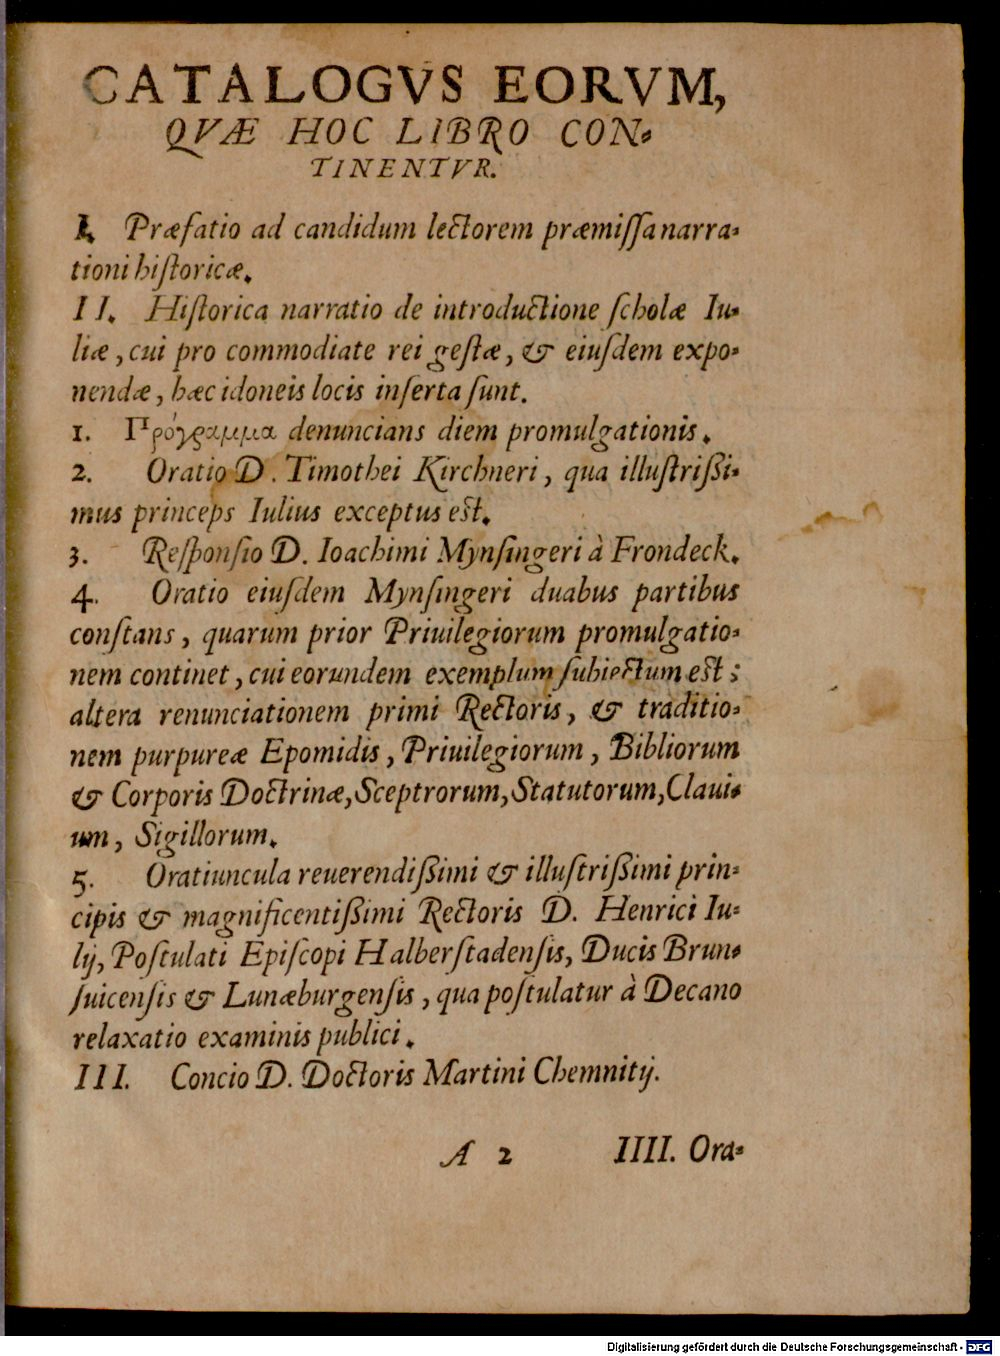 CATALOGVS EORVM,
QVÆ HOC LIBRO CON-
TINENTVR.
I. Præfatio ad candidum lectorem præmissa narra-
tioni historicæ.
II. Historica narratio de introductione scholæ Iu-
liæ, cui pro commodiate rei gestæ, & eiusdem expo-
nendæ, hæc idoneis locis inserta sunt.
1. Πρόγραμμα denuncians diem promulgationis.
2. Oratio D. Timothei Kirchneri, qua illustrißi-
mus princeps Iulius exceptus est.
3. Responsio D. Ioachimi Mynsingeri à Frondeck.
4. Oratio eiusdem Mynsingeri duabus partibus
constans, quarum prior Priuilegiorum promulgatio-
nem continet, cui eorundem exemplum subiectum est;
altera renunciationem primi Rectoris, & traditio-
nem purpureæ Epomidis, Priuilegiorum, Bibliorum
& Corporis Doctrinæ, Sceptrorum, Statutorum, Claui-
um, Sigillorum.
5. Oratiuncula reuerendißimi & illustrißimi prin-
cipis & magnificentißimi Rectoris D. Henrici Iu-
lij, Postulati Episcopi Halberstadensis, Ducis Brun-
suicensis & Lunæburgensis, qua postulatur à Decano
relaxatio examinis publici.
III. Concio D. Doctoris Martini Chemnitij.
A 2 IIII. Ora-
Digitalisierung gefördert durch die Deutsche Forschungsgemeinschaft - DFG